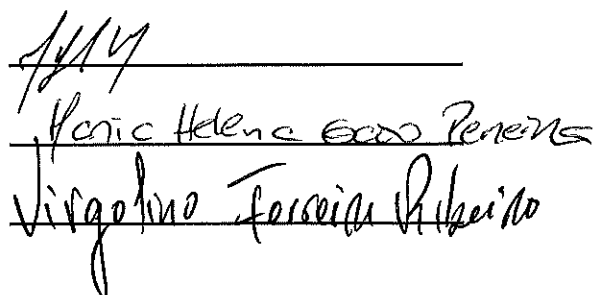 Maria Helena Pereira
Virgolino Ferreira Ribeiro